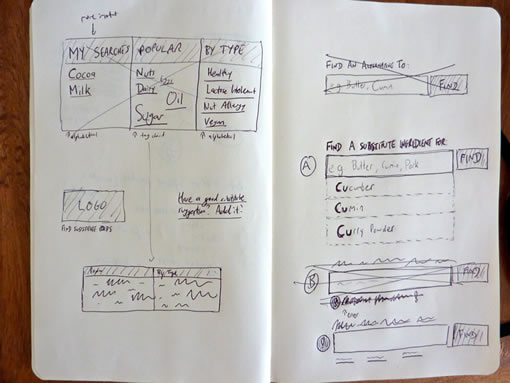 MY SEARCHES
POPULAR
BY TYPE
Cocoa
Milk
Nuts
Eggs
Dairy
Oil
Sugar
Healthy
Lactose Intolerant
Nut Allergy
Vegan
↑ alphabetical
↑ tag cloud
↑ alphabetical
LOGO
Have a good substitute
suggestion? Add it!
By Type
FIND AN ALTERNATIVE TO:
e.g. Butter, Cumin
FIND
FIND A SUBSTITUTE INGREDIENT FOR
A
e.g. Butter, Cumin, Pork
FIND
Cucumber
Cumin
Curry Powder
B
FIND
FIND